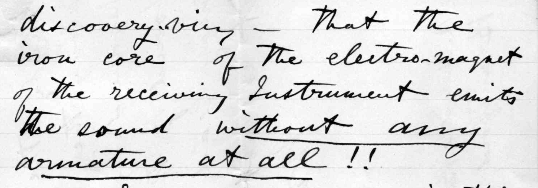 discovery. viz, — that the
iron core of the electro-magnet
of the receiving Instrument emits
the sound without any
armature at all !!